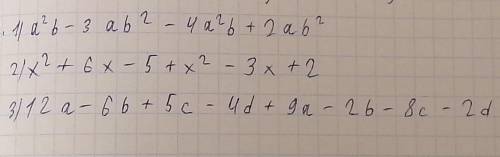 1) a²b - 3 ab² - 4a²b + 2ab²
2) x² + 6x - 5 + x² - 3x + 2
3) 12a - 6b + 5c - 4d + 9a - 2b - 8c - 2d